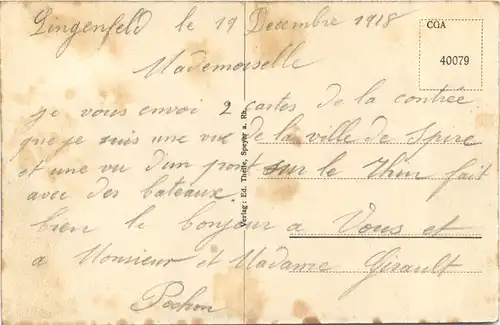 Lingenfeld le 19 Decembre 1918
CQA
40079
Mademoiselle
je vous envoi 2 cartes de la contrée
que je suis une vue de la ville de Spire
et une vu d'un pont sur le Rhin fait
avec des bateaux.
bien le bonjour a Vous et
a Monsieur et Madame Girault
Pochon
Verlag: Ed. Theile, Speyer a. Rh.